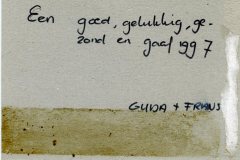 Een goed, gelukkig, ge-
zond en gaaf 1997
GUDA + FRANS